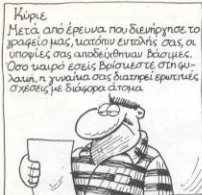 Κύριε
Μετά από έρευνα που διενήργησε το
γραφείο μας, κατόπιν εντολής σας, οι
υποψίες σας αποδείχθηκαν βάσιμες.
Όσο καιρό εσείς βρίσκεστε στη φυ-
λακή, η γυναίκα σας διατηρεί ερωτικές
σχέσεις με διάφορα άτομα